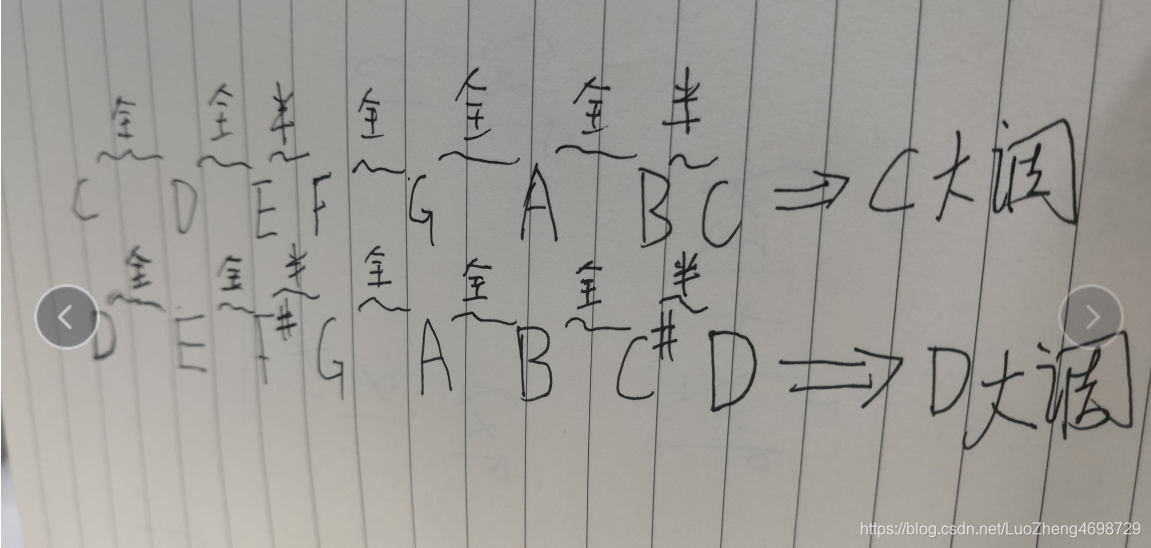 全 全 半 全 全 全 半
C D E F G A B C ⇒ C大调
全 全 半 全 全 全 半
D E F# G A B C# D ⇒ D大调
https://blog.csdn.net/LuoZheng4698729